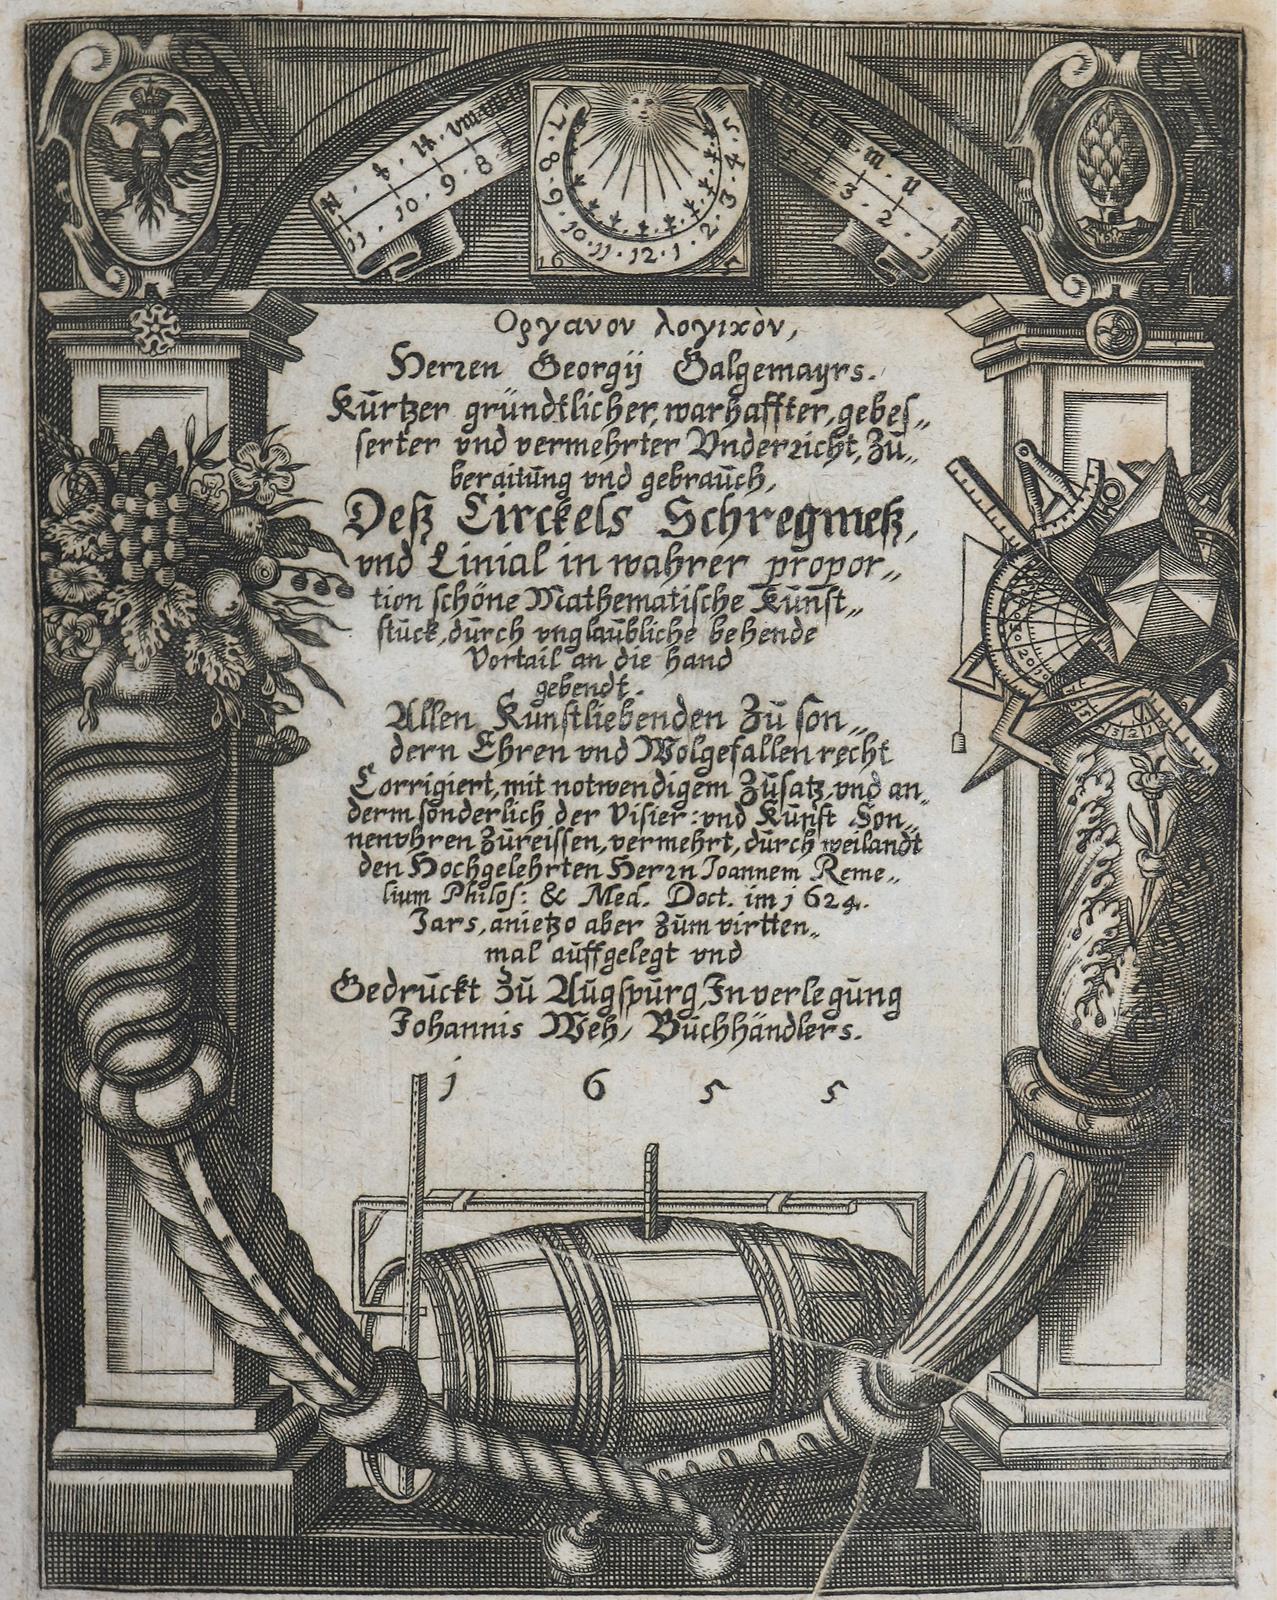 7 8 9 10 11 12 1 2 3 4 5
11 . 10 . 9 . 8 .
3 . 2 .
16 5
Οργανον λογικὸν,
Herren Georgij Galgemayrs.
Kurtzer gründtlicher, warhaffter, gebes„
serter vnd vermehrter Vnderricht, Zu„
beraitung vnd gebrauch,
Deß Circkels Schregmeß,
vnd Linial in wahrer propor„
tion schöne Mathematische Kunst„
stuck, durch vnglaubliche behende
Vortail an die hand
gebendt.
Allen Kunstliebenden Zu son„
dern Ehren vnd Wolgefallen recht
Corrigiert, mit notwendigem Zusatz, vnd an„
derm sonderlich der Visier: vnd Kunst Son„
nenvhren Zureissen, vermehrt, durch weilandt
den Hochgelehrten Herrn Joannem Reme„
lium Philos: & Med. Doct. im 1624.
Jars, anietzo aber Zum virtten„
mal auffgelegt vnd
Gedruckt Zu Augspurg, In verlegung
Johannis Weh, Buchhändlers.
1 6 5 5